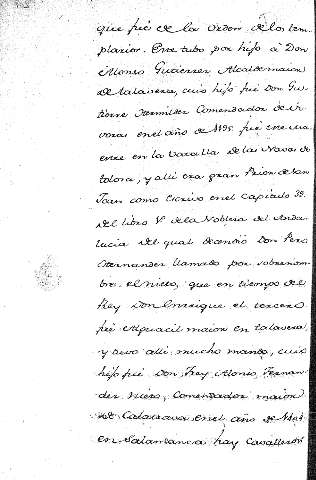 que fué de la Orden de los tem-
plarios. Este tubo por hijo à Don
Alonso Gutierrez Alcalde maior
de talavera, cuio hijo fué Don Gu-
tierre Hermildez Comendador de
en el año de fué
en la vatalla de las Navas de
tolosa, y alli era gran Prior de San
Juan como escrivo en el Capitulo 38.
del libro 1º de la Nobleza del Anda-
lucia del qual decendio Don Pero
Hernandez llamado por sobrenom-
bre el nieto, que en tiempo del
Rey Don Enrrique el tercero
fué Alguacil maior en talavera
y tuvo alli mucho mando, cuio
hijo fué Don frey Alonso Fernan-
dez nieto, Comendador maior
de Calatrava en el año de
en Salamanca hay Cavalleros